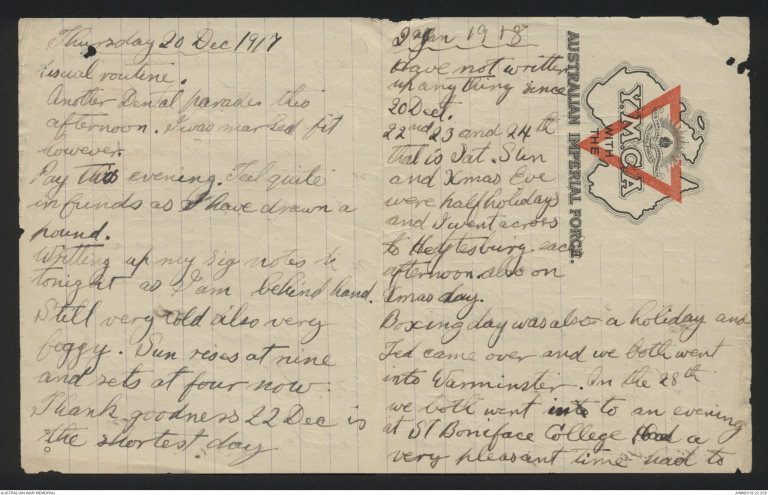 Thursday 20 Dec 1917
Usual routine.
Another Dental parade this
afternoon. I was marked fit
however.
Pay this evening. Feel quite
in funds as I have drawn a
pound.
Writing up my sig notes
tonight as I am behind hand.
Still very cold also very
foggy. Sun rises at nine
and sets at four now.
Thank goodness 22 Dec is
the shortest day
Jan 1918
Have not written
up any thing since
20 Dect.
22nd 23 and 24th
that is Sat. Sun
and Xmas Eve
were half holidays
and I went across
to Heytesbury. each
afternoon also on
Xmas day.
Boxing day was also a holiday and
Ted came over and we both went
into Warminster. On the 28th
we both went to an evening
at St Boniface College Had a
very pleasant time had to
Y.M.C.A
WITH
THE
AUSTRALIAN IMPERIAL FORCE.
AUSTRALIAN WAR MEMORIAL